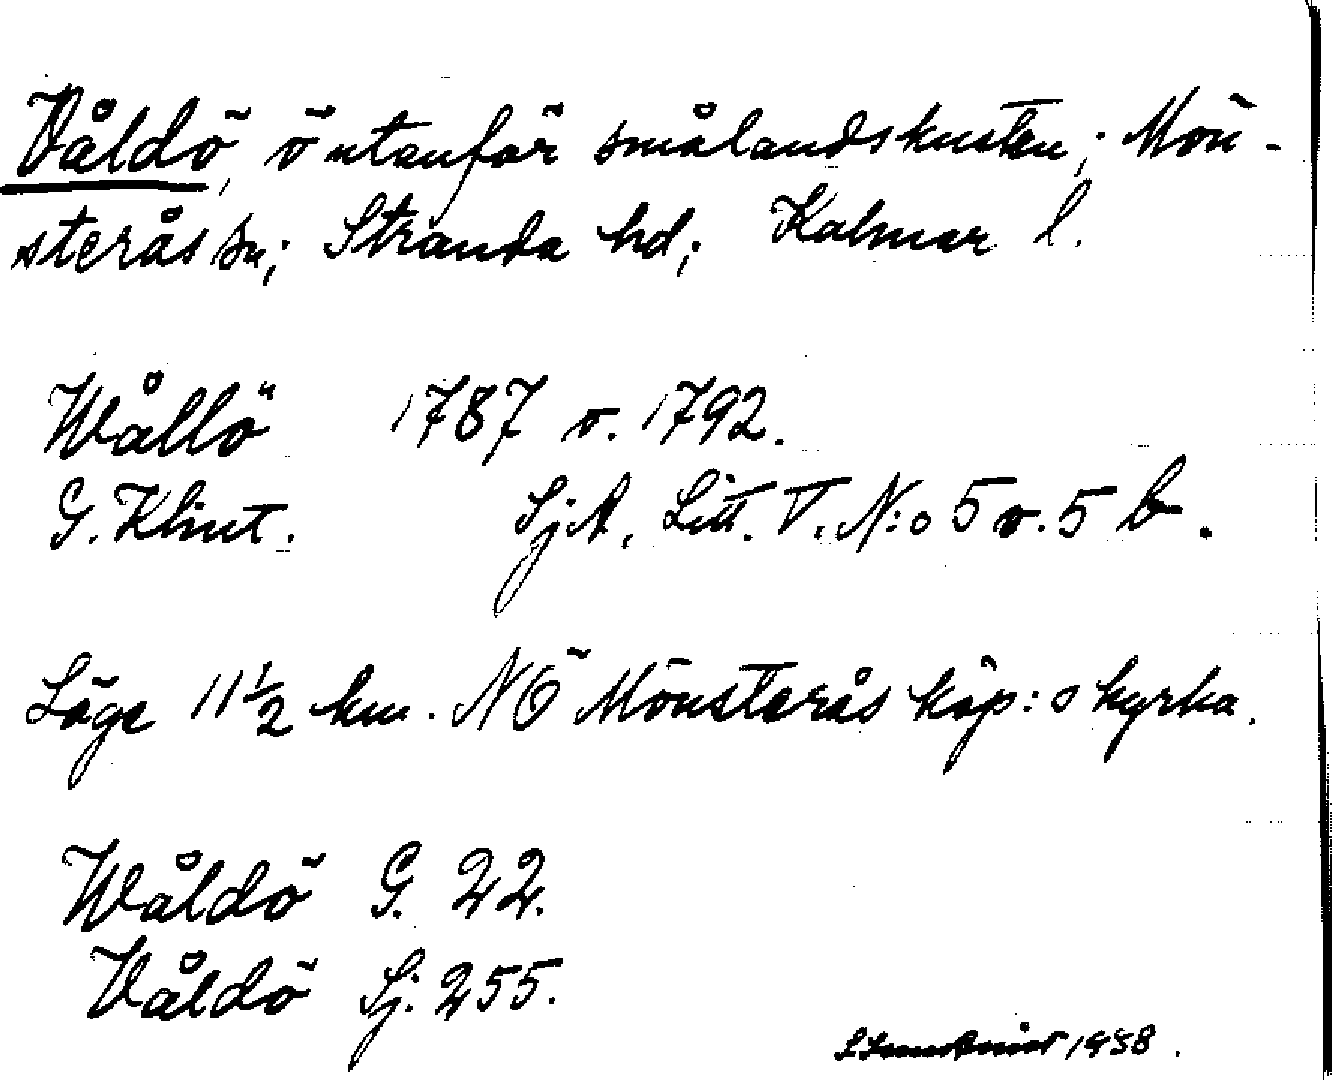 Våldö, ö utanför smålandskusten; Mön-
sterås sn; Stranda hd; Kalmar l.
Wållö 1787 o. 1792.
G. Klint. SjA, Litt. V. N:o 5 o. 5 b.
Läge 11 1/2 km. NÖ Mönsterås köp:s kyrka.
Wåldö G. 22.
Våldö Sj. 255.
1938.